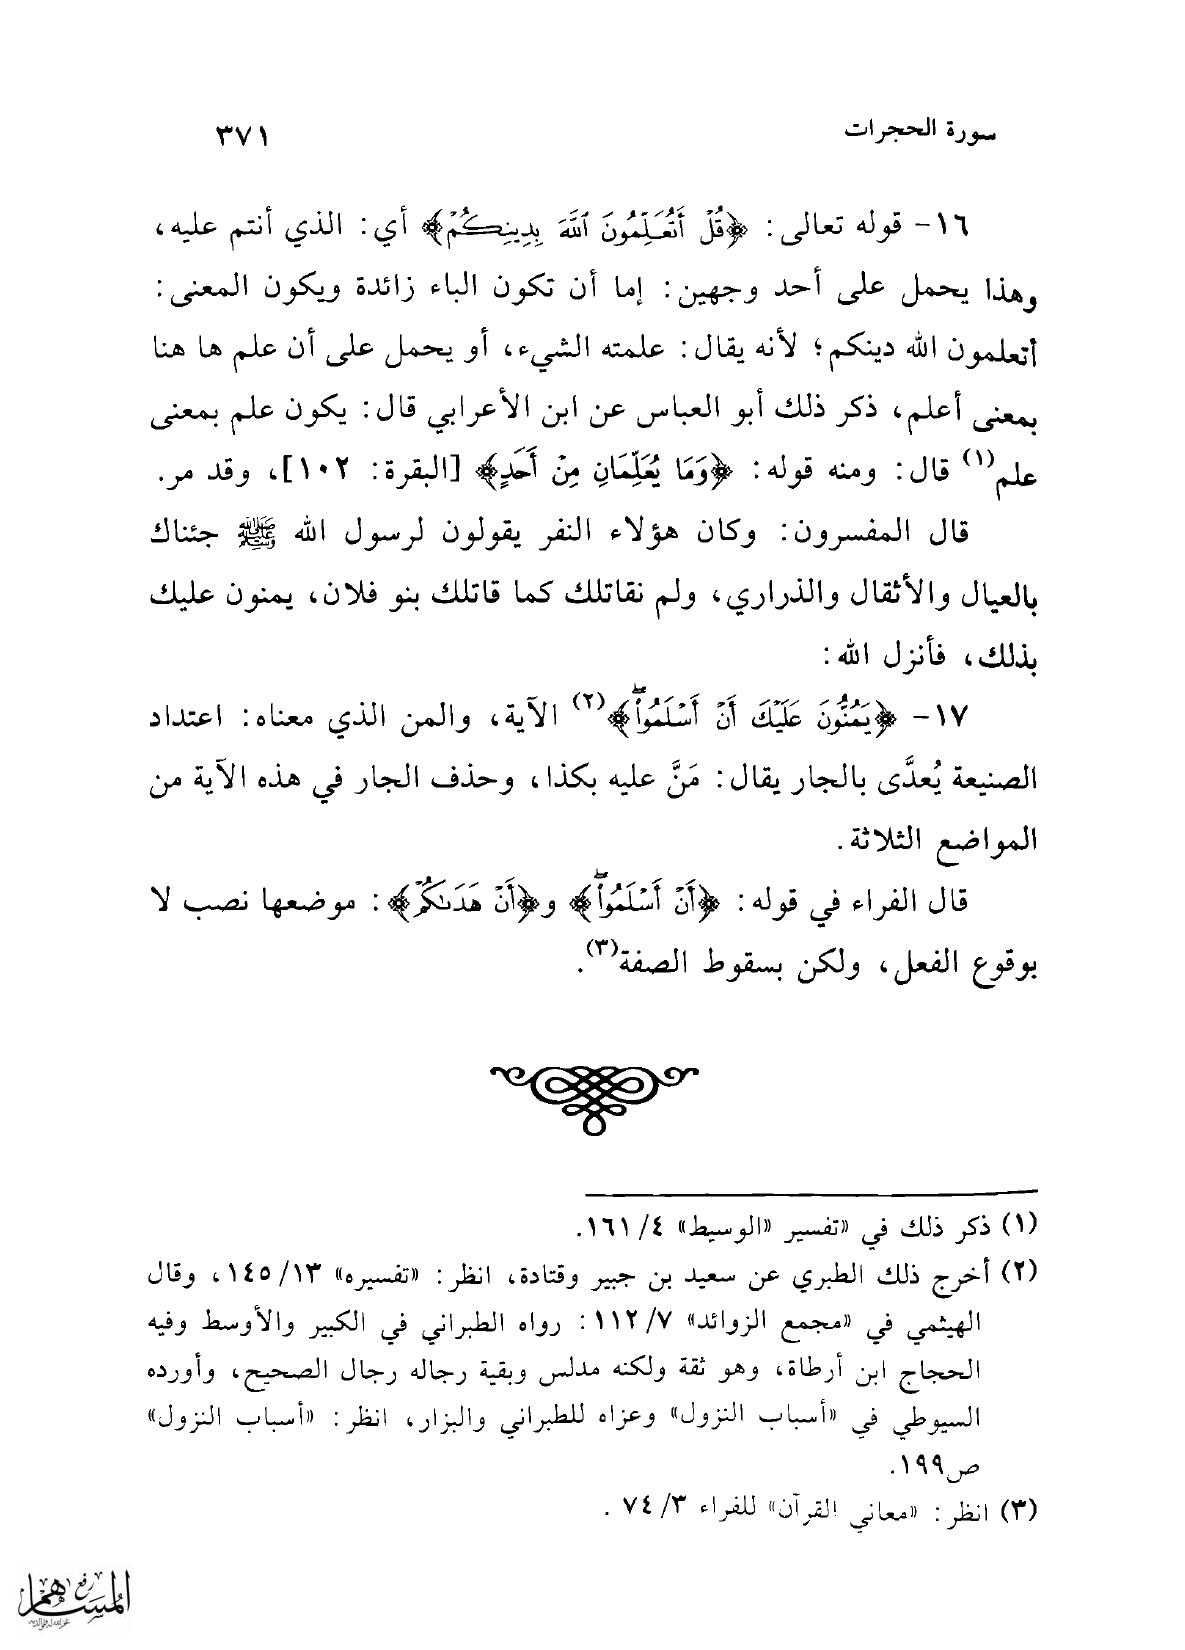 سورة الحجرات ٣٧١
١٦- قوله تعالى: ﴿قُلۡ أَتُعَلِّمُونَ ٱللَّهَ بِدِينِكُمۡ﴾ أي: الذي أنتم عليه،
وهذا يحمل على أحد وجهين: إما أن تكون الباء زائدة ويكون المعنى:
أتعلمون الله دينكم؛ لأنه يقال: علمته الشيء، أو يحمل على أن علم ها هنا
بمعنى أعلم، ذكر ذلك أبو العباس عن ابن الأعرابي قال: يكون علم بمعنى
علم(١) قال: ومنه قوله: ﴿وَمَا يُعَلِّمَانِ مِنۡ أَحَدٍ﴾ [البقرة: ١٠٢]، وقد مر.
قال المفسرون: وكان هؤلاء النفر يقولون لرسول الله ﷺ جئناك
بالعيال والأثقال والذراري، ولم نقاتلك كما قاتلك بنو فلان، يمنون عليك
بذلك، فأنزل الله:
١٧- ﴿يَمُنُّونَ عَلَيۡكَ أَنۡ أَسۡلَمُواْۖ﴾(٢) الآية، والمن الذي معناه: اعتداد
الصنيعة يُعدَّى بالجار يقال: مَنَّ عليه بكذا، وحذف الجار في هذه الآية من
المواضع الثلاثة.
قال الفراء في قوله: ﴿أَنۡ أَسۡلَمُواْۖ﴾ و﴿أَنۡ هَدَىٰكُمۡ﴾: موضعها نصب لا
بوقوع الفعل، ولكن بسقوط الصفة(٣).
(١) ذكر ذلك في «تفسير «الوسيط» ٤/ ١٦١.
(٢) أخرج ذلك الطبري عن سعيد بن جبير وقتادة، انظر: «تفسيره» ١٣/ ١٤٥، وقال
الهيثمي في «مجمع الزوائد» ٧/ ١١٢: رواه الطبراني في الكبير والأوسط وفيه
الحجاج ابن أرطاة، وهو ثقة ولكنه مدلس وبقية رجاله رجال الصحيح، وأورده
السيوطي في «أسباب النزول» وعزاه للطبراني والبزار، انظر: «أسباب النزول»
ص١٩٩.
(٣) انظر: «معاني القرآن» للفراء ٣/ ٧٤ .
رفع
المساهم